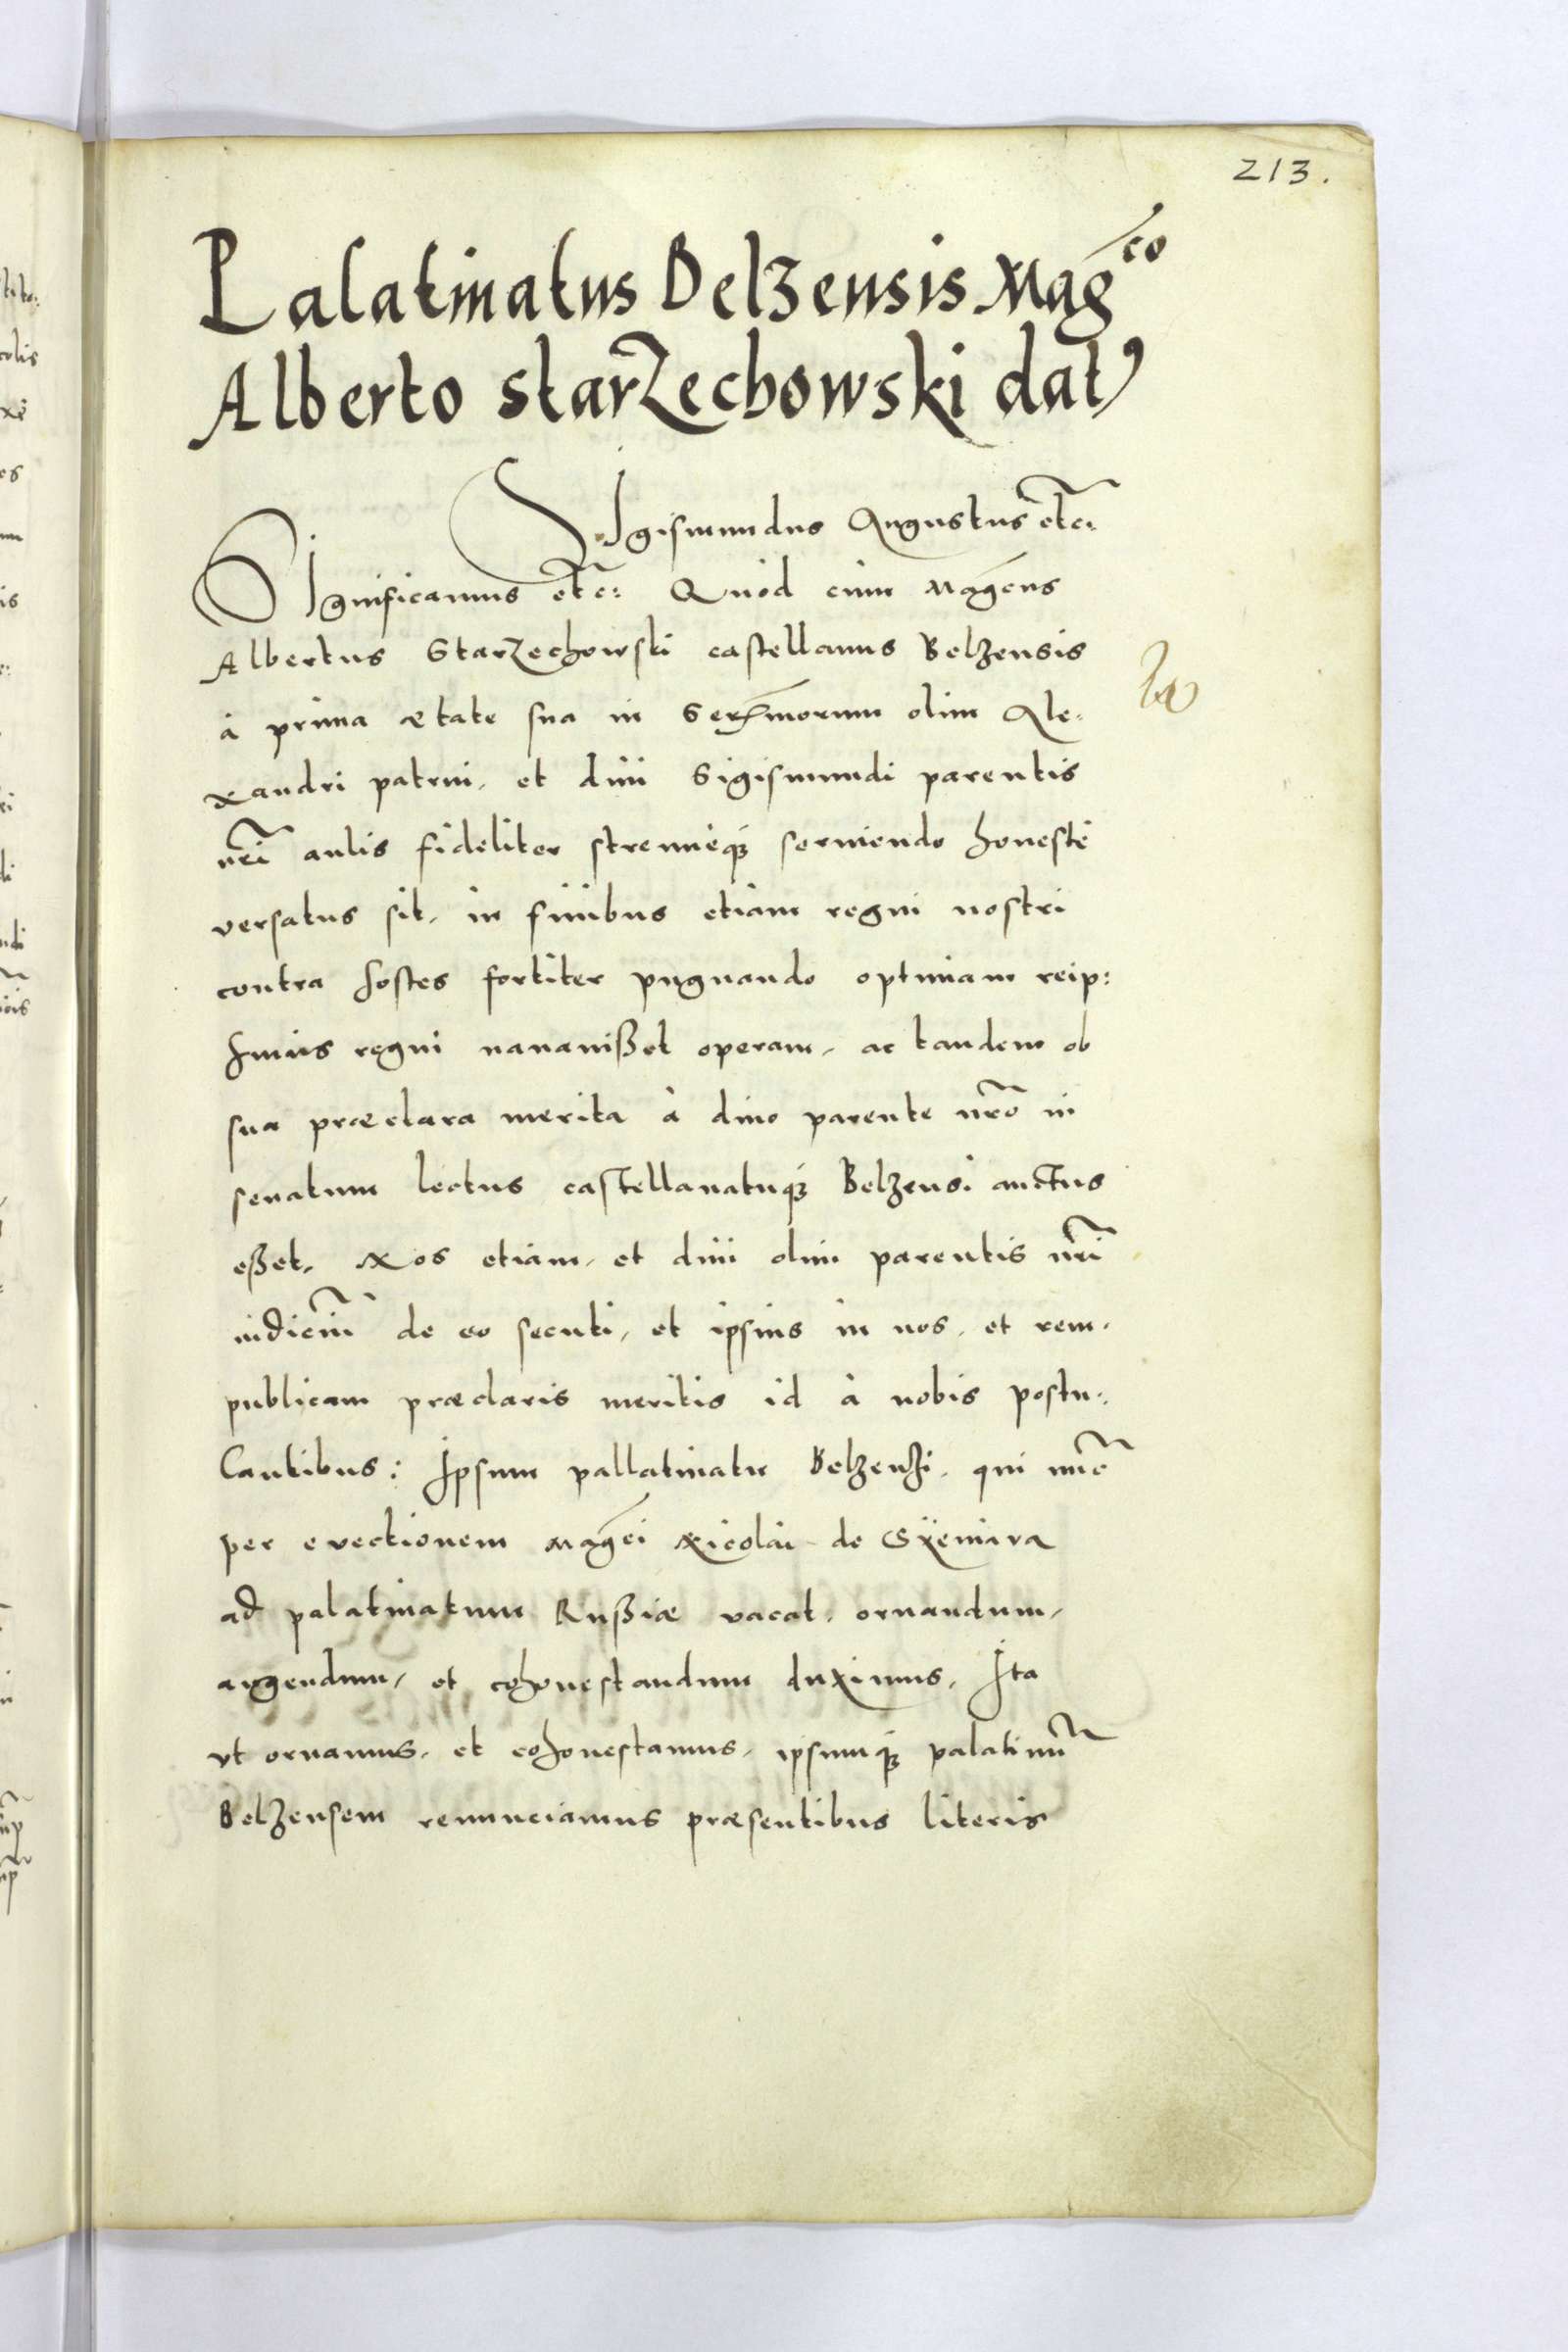 213.
Palatinatus Belzensis Magco
Alberto starzechowski dat9
Sigismundus Augustus etc:
Significamus etc: Quod cum Magcus
Albertus Starzechowski castellanus Belzensis
à prima ætate sua in Serenmorum olim Ale-
xandri patrui, et diui Sigismundi parentis
nri aulis fideliter strenueq; seruiendo honeste
versatus sit, in finibus etiam regni nostri
contra hostes fortiter pugnando optimam reip:
huius regni nauauißet operam, ac tandem ob
sua præclara merita à diuo parente nro in
senatum lectus castellanatuq; Belzensi auctus
eßet, Nos etiam, et diui olim parentis nri
iudiciu de eo secuti, et ipsius in nos, et rem-
publicam præclaris meritis id à nobis postu-
lantibus: Ipsum pallatinatu Belzensi, qui nuc
per evectionem Magci Nicolai de Syeniava
ad palatinatum Rußiæ vacat, ornandum,
augendum, et cohonestandum duximus, Ita
vt ornamus, et cohonestamus, ipsumq; palatinu
Belzensem renunciamus præsentibus literis